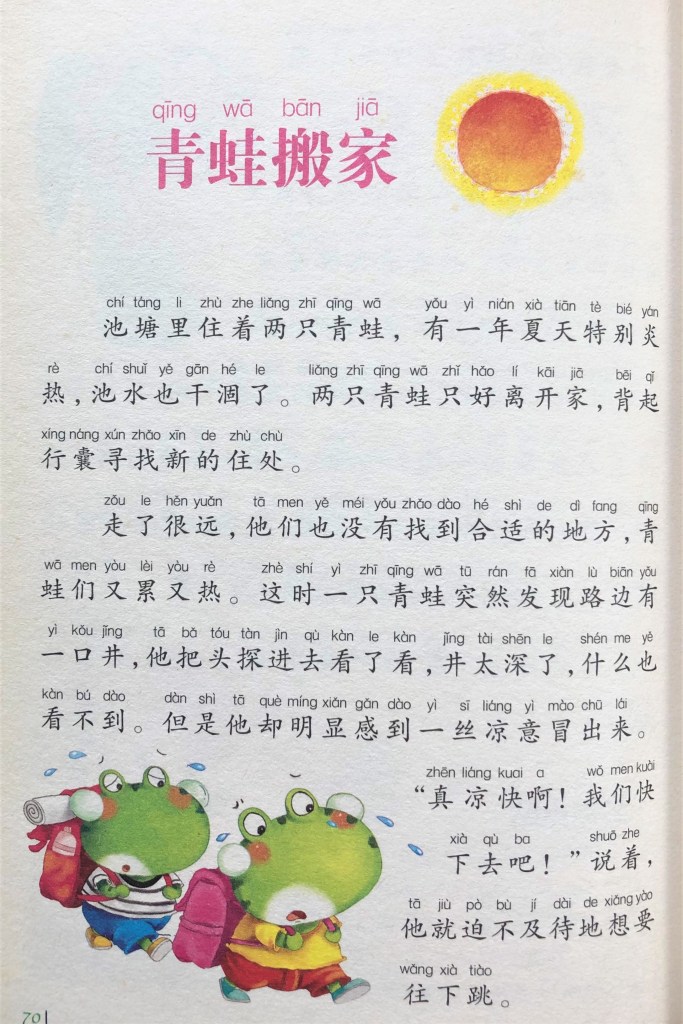 qīng wā bān jiā
青蛙搬家
chí táng li zhù zhe liǎng zhī qīng wā yǒu yì nián xià tiān tè bié yán
池塘里住着两只青蛙，有一年夏天特别炎
rè chí shuǐ yě gān hé le liǎng zhī qīng wā zhǐ hǎo lí kāi jiā bēi qǐ
热，池水也干涸了。两只青蛙只好离开家，背起
xíng náng xún zhǎo xīn de zhù chù
行囊寻找新的住处。
zǒu le hěn yuǎn tā men yě méi yǒu zhǎo dào hé shì de dì fang qīng
走了很远，他们也没有找到合适的地方，青
wā men yòu lèi yòu rè zhè shí yì zhī qīng wā tū rán fā xiàn lù biān yǒu
蛙们又累又热。这时一只青蛙突然发现路边有
yì kǒu jǐng tā bǎ tóu tàn jìn qù kàn le kàn jǐng tài shēn le shén me yě
一口井，他把头探进去看了看，井太深了，什么也
kàn bú dào dàn shì tā què míng xiǎn gǎn dào yì sī liáng yì mào chū lái
看不到。但是他却明显感到一丝凉意冒出来。
zhēn liáng kuai a wǒ men kuài
“真凉快啊！我们快
xià qù ba shuō zhe
下去吧！”说着，
tā jiù pò bù jí dài de xiǎng yào
他就迫不及待地想要
wǎng xià tiào
往下跳。
70